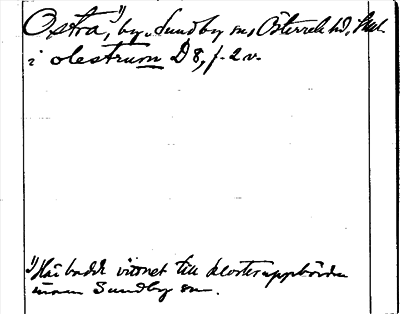 Ostra,¹⁾ by, Sundby sn, Österrek hd, Smål.
i olestrum D 8, f. 2 v.
¹⁾ Här bodde vittnet till klosteruppbörden
inom Sundby sn.